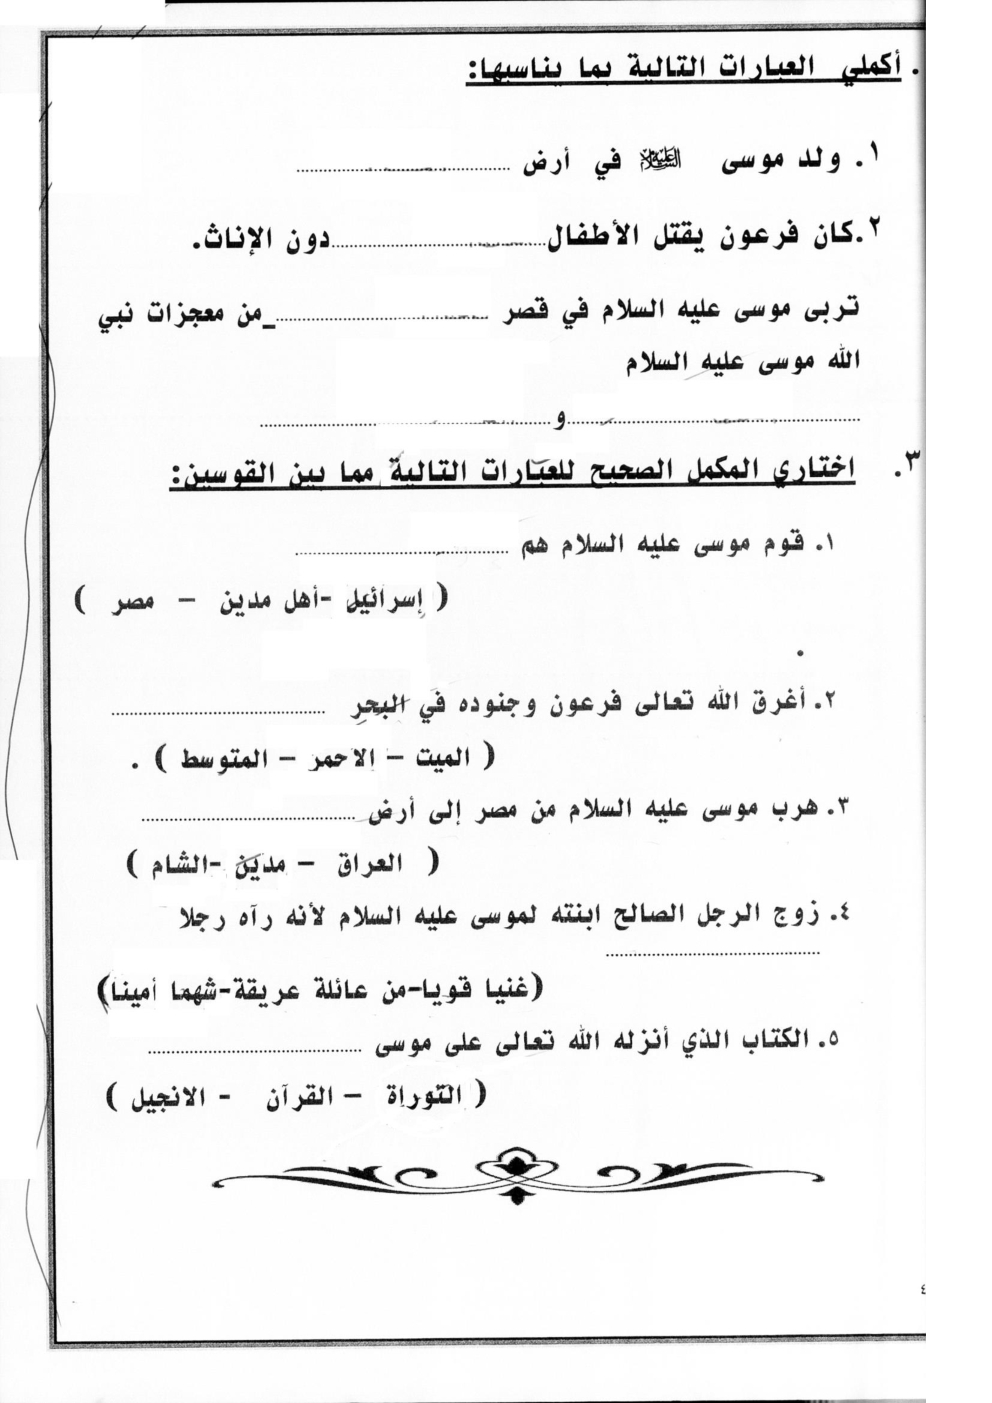 . أكملي العبارات التالية بما يناسبها:
١. ولد موسى عليه السلام في أرض ..............................
٢.كان فرعون يقتل الأطفال..............................دون الإناث.
تربى موسى عليه السلام في قصر .............................._من معجزات نبي
الله موسى عليه السلام
..............................و..............................
٣. اختاري المكمل الصحيح للعبارات التالية مما بين القوسين:
١. قوم موسى عليه السلام هم ..............................
( إسرائيل -أهل مدين – مصر )
.
٢. أغرق الله تعالى فرعون وجنوده في البحر ..............................
( الميت – الاحمر – المتوسط ) .
٣. هرب موسى عليه السلام من مصر إلى أرض ..............................
( العراق – مدين -الشام )
٤. زوج الرجل الصالح ابنته لموسى عليه السلام لأنه رآه رجلا
..............................
(غنيا قويا-من عائلة عريقة-شهما أمينا)
٥. الكتاب الذي أنزله الله تعالى على موسى ..............................
( التوراة – القرآن - الانجيل )
٤